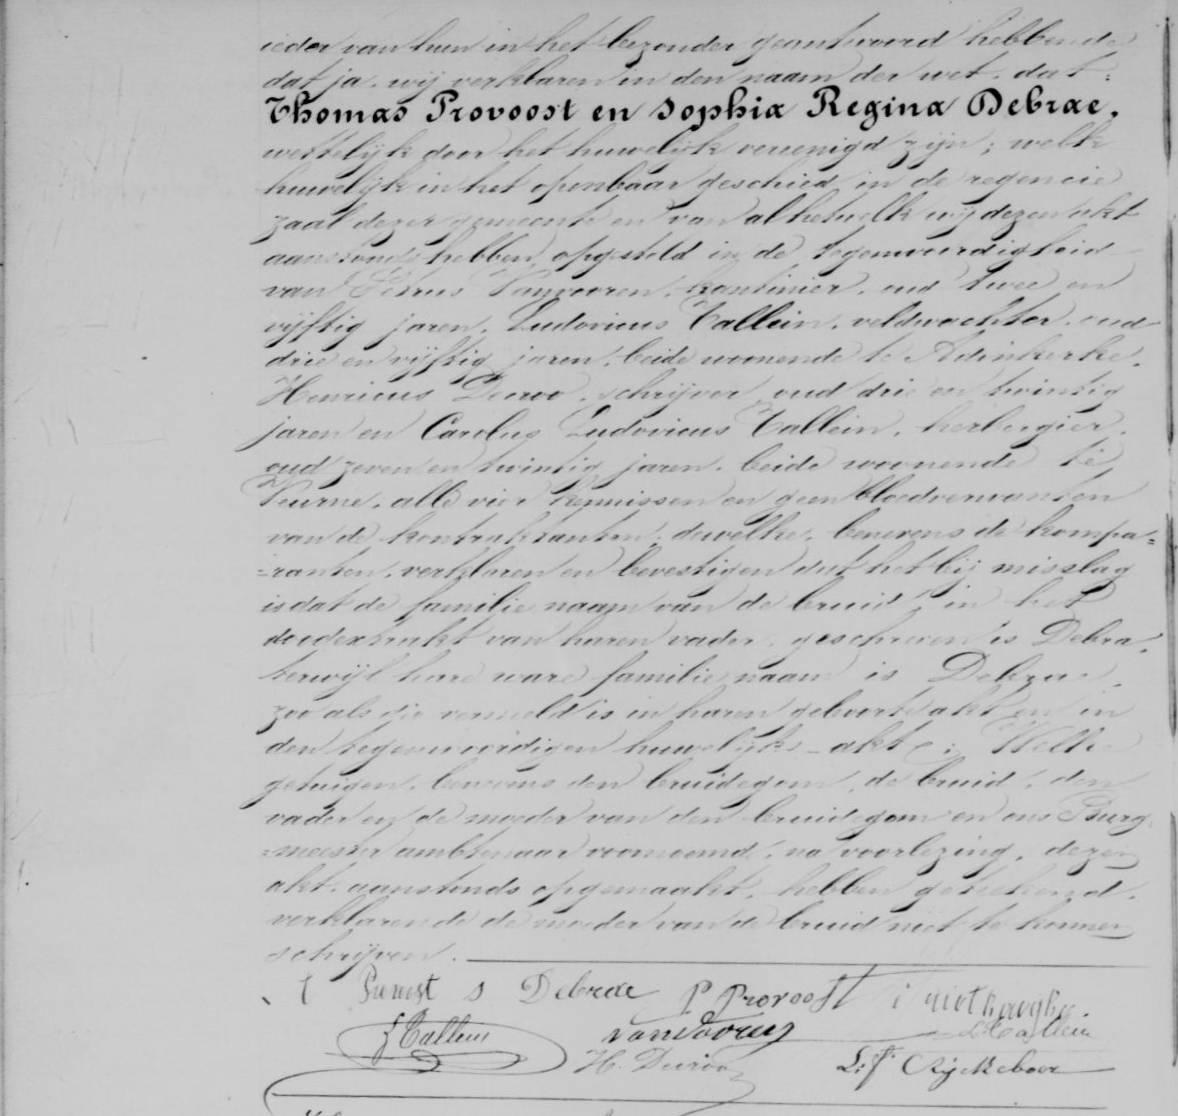 ieder van hun in het bezonder geantwoord hebbende
dat ja. wij verklaren in den naam der wet. dat:
Thomas Provoost en Sophia Regina Debrae.
wettelijk door het huwelijk vereenigd zijn; welk
huwelijk in het openbaar geschied in de regencie
zaal dezer gemeente en van al hetwelk wij dezen akt
aanstonds hebben opgesteld in de tegenwoordigheid
van Petrus Vanvooren. kantinier. oud twee en
vijftig jaren. Ludovicus Tallein. veldwachter. oud
drie en vijftig jaren. beide woonende te Adinkerke.
Henricus Deroo. schrijver. oud drie en twintig
jaren en Carolus Ludovicus Tallein. herbergier.
oud zeven en twintig jaren. beide woonende te
Veurne. alle vier kennissen en geen bloedverwanten
van de kontraktanten. dewelke. benevens de kompa=
=ranten. verklaren en bevestigen dat het bij misslag
is dat de familie naam van de bruid. in het
doodextrakt van haren vader. geschreven is Debra.
terwijl hare ware familie naam is Debrae.
zoo als die vermeld is in haren geboorte akt en in
den tegenwoordigen huwelijks-akte; Welke
getuigen. benevens den bruidegom. de bruid. den
vader en de moeder van den bruidegom en ons Burg
=meester ambtenaar voornoemd. na voorlezing. dezen
akt. aanstonds opgemaakt. hebben geteekend.
verklarende de moeder van de bruid niet te konnen
schrijven.
S Debrae P Provoost
L Tallein Vanvooren Tallein
H. Deroo L: F: Rijckeboer